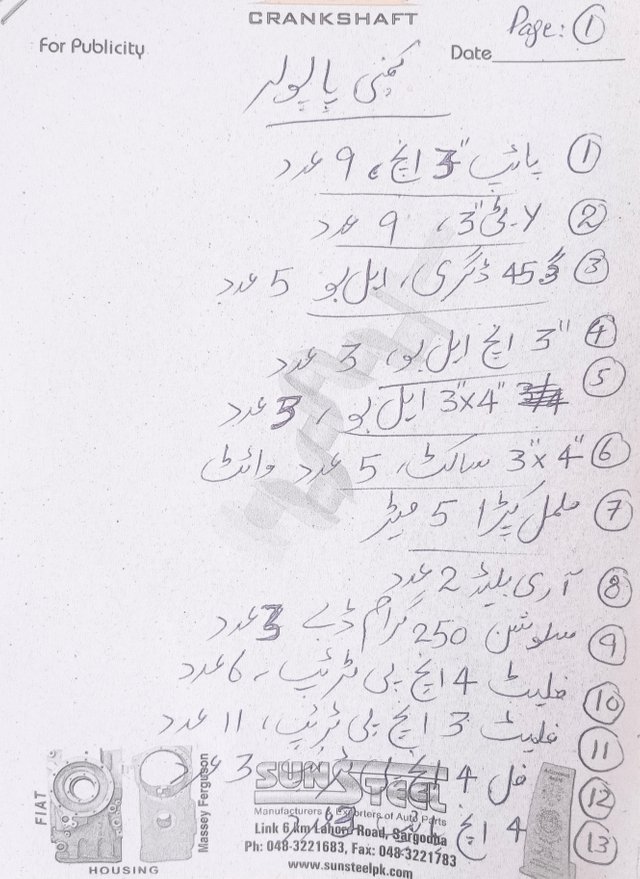 CRANKSHAFT
Page: ①
For Publicity
Date
کمپنی پاپولر
① پائپ 3" انچ، 9 عدد
② Y-ٹی 3"، 9 عدد
③ 45 ڈگری، ایل بو 5 عدد
④ 3" انچ ایل بو، 3 عدد
⑤ 3"x4" ایل بو، 3 عدد
⑥ 3"x4" ساکٹ، 5 عدد وائٹ
⑦ ململ کپڑا 5 میٹر
⑧ آری بلیڈ 2 عدد
⑨ سلوشن 250 گرام ڈبے 3 عدد
⑩ فلیٹ 4 انچ پی ٹریپ، 6 عدد
⑪ فلیٹ 3 انچ پی ٹریپ، 11 عدد
⑫ فل 4 انچ 3 عدد
⑬ 4 انچ
FIAT
HOUSING
Massey Ferguson
SUNSTEEL
Manufacturers & Exporters of Auto Parts
Link 6 km Lahore Road, Sargodha
Ph: 048-3221683, Fax: 048-3221783
www.sunsteelpk.com